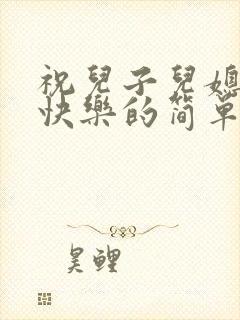 祝兒子兒媳
快樂的简单
昊鲤